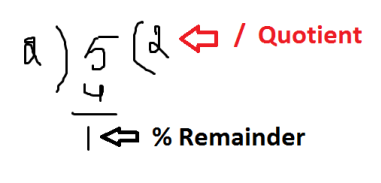 2 ) 5 ( 2 / Quotient
4
1 % Remainder